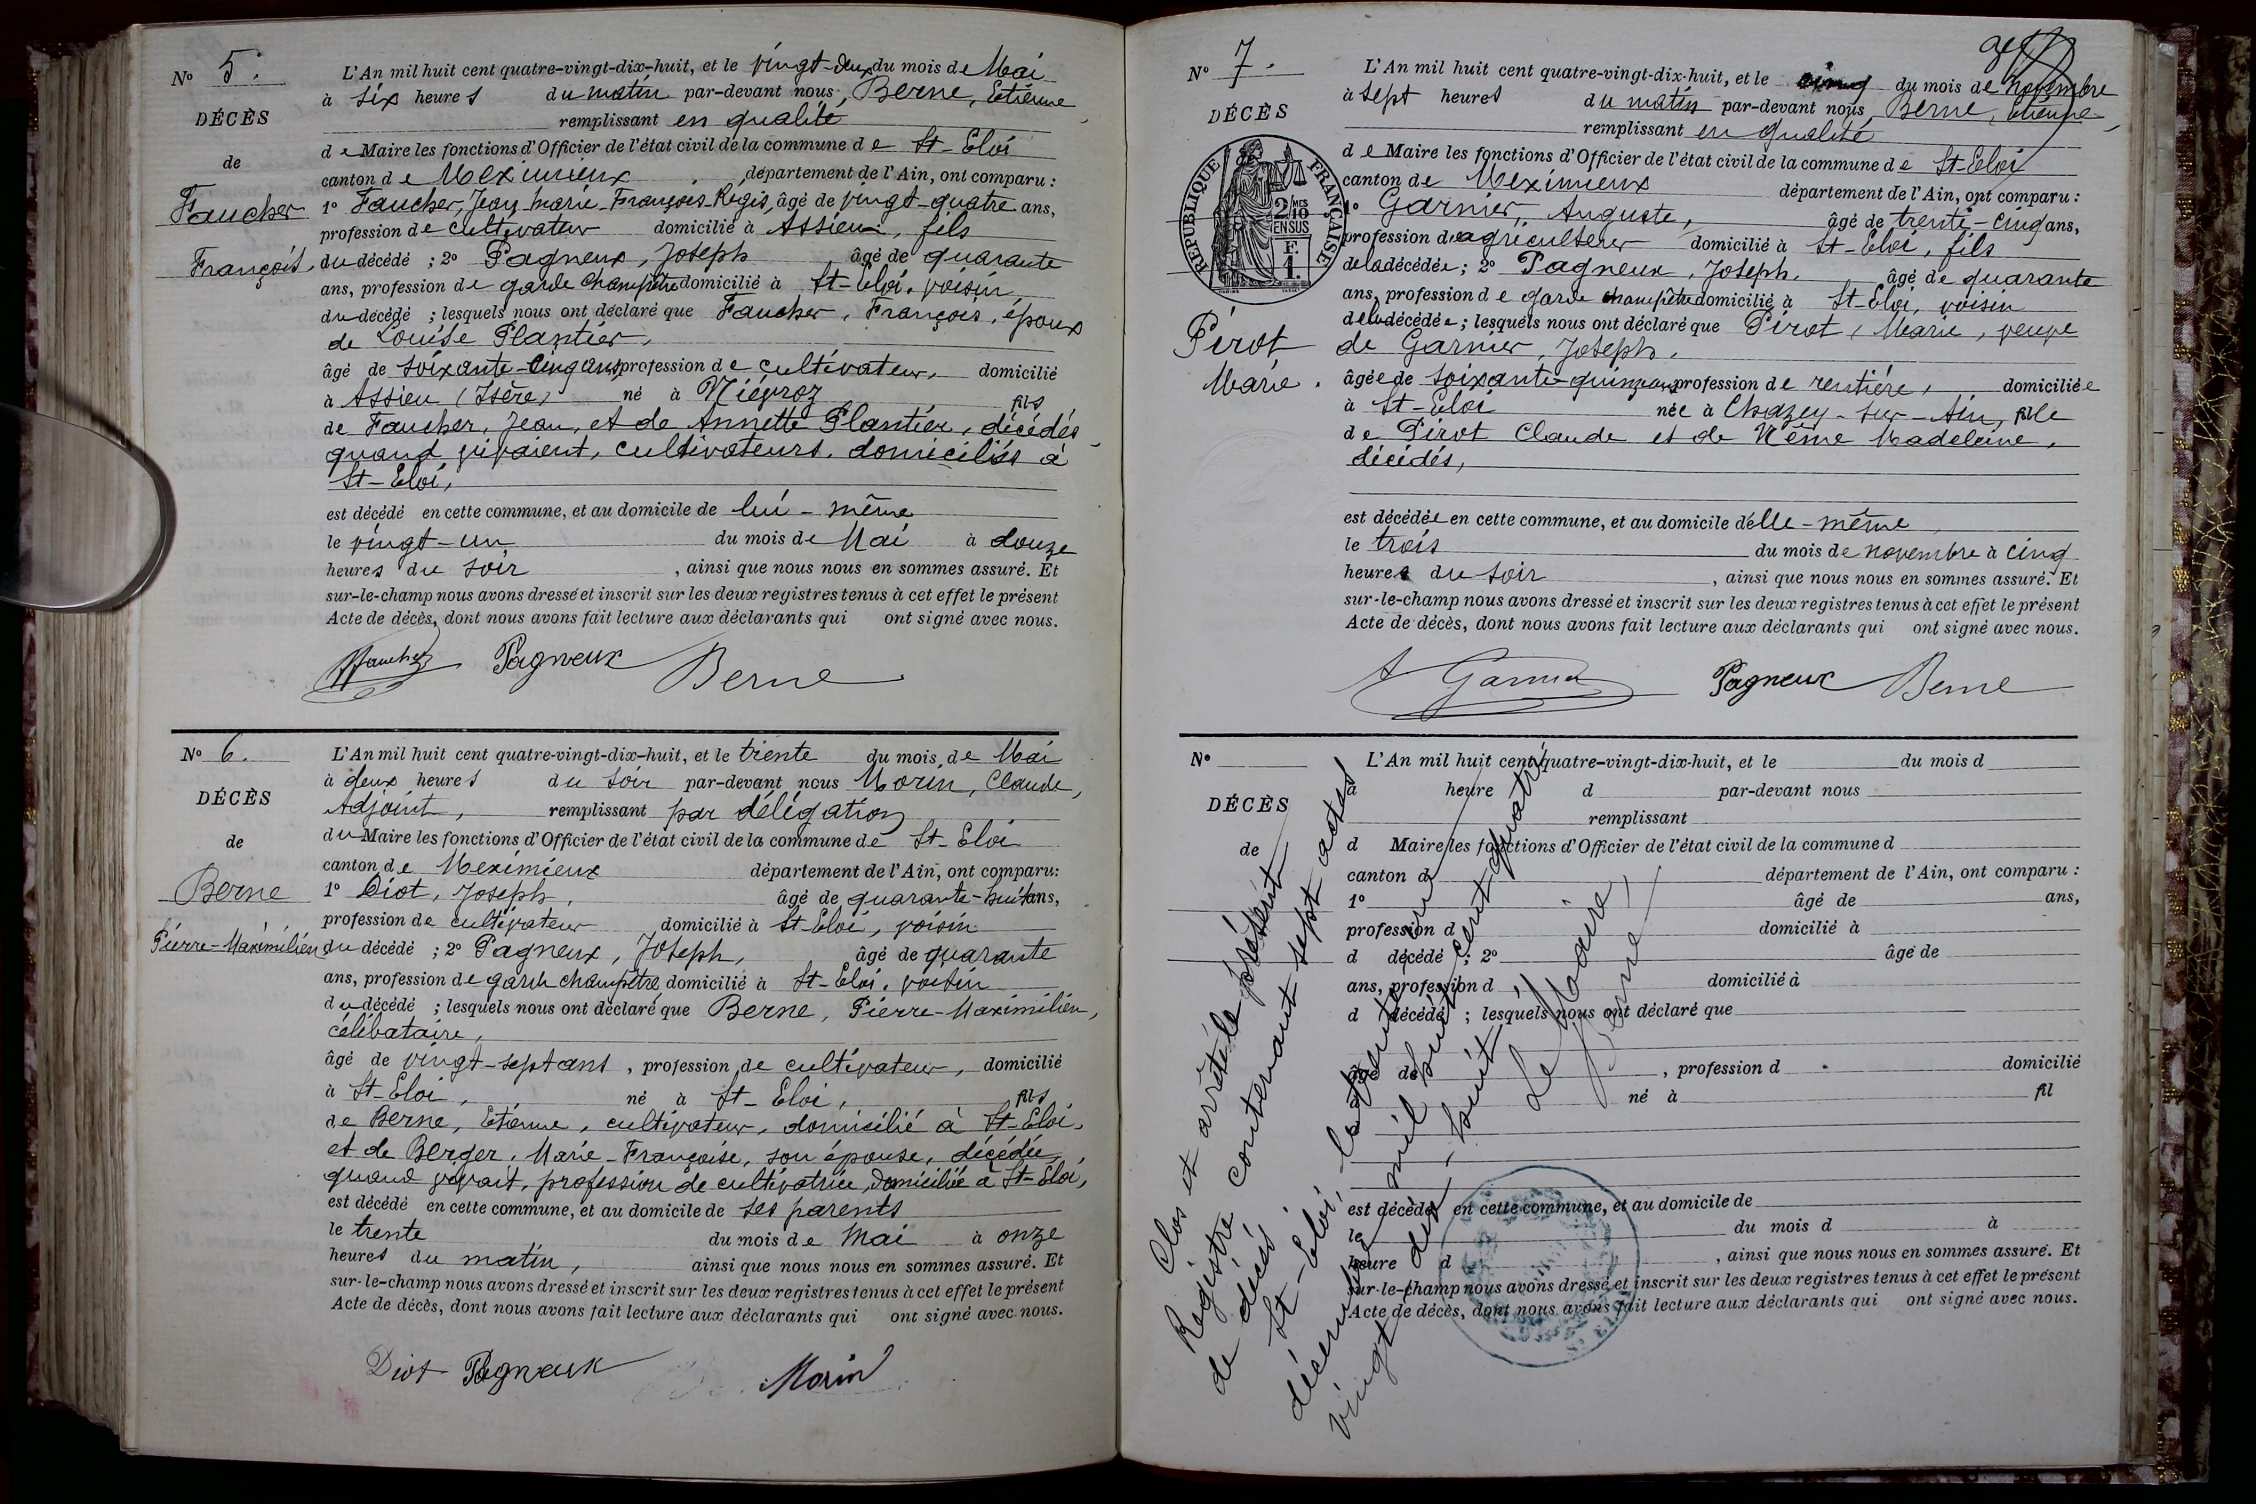 Nº 5.
DÉCÈS
de
Faucher
François
L'An mil huit cent quatre-vingt-dix-huit, et le vingt-deux du mois de Mai
à six heures du matin par-devant nous, Berne, Etienne
remplissant en qualité
de Maire les fonctions d'Officier de l'état civil de la commune de St-Eloi
canton de Meximieux, département de l'Ain, ont comparu :
1º Faucher, Jean Marie-François-Régis, âgé de vingt-quatre ans,
profession de cultivateur domicilié à Assieu, fils
du décédé ; 2º Pagneux, Joseph âgé de quarante
ans, profession de garde champêtre domicilié à St-Eloi, voisin
du décédé ; lesquels nous ont déclaré que Faucher, François, époux
de Louise Plantier,
âgé de soixante-cinq ans, profession de cultivateur, domicilié
à Assieu (Isère) né à Niévroz fils
de Faucher, Jean, et de Annette Plantier, décédés
quand vivaient, cultivateurs, domiciliés à
St-Eloi,
est décédé en cette commune, et au domicile de lui-même
le vingt-un du mois de Mai à douze
heures du soir, ainsi que nous nous en sommes assuré. Et
sur-le-champ nous avons dressé et inscrit sur les deux registres tenus à cet effet le présent
Acte de décès, dont nous avons fait lecture aux déclarants qui ont signé avec nous.
Faucher Pagneux Berne
Nº 6.
DÉCÈS
de
Berne
Pierre-Maximilien
L'An mil huit cent quatre-vingt-dix-huit, et le trente du mois de Mai
à deux heures du soir par-devant nous Morin, Claude,
Adjoint, remplissant par délégation
du Maire les fonctions d'Officier de l'état civil de la commune de St-Eloi
canton de Meximieux département de l'Ain, ont comparu:
1º Diot, Joseph, âgé de quarante-huit ans,
profession de cultivateur domicilié à St-Eloi, voisin
du décédé ; 2º Pagneux, Joseph, âgé de quarante
ans, profession de garde champêtre domicilié à St-Eloi, voisin
du décédé ; lesquels nous ont déclaré que Berne, Pierre-Maximilien,
célibataire,
âgé de vingt-sept ans, profession de cultivateur, domicilié
à St-Eloi, né à St-Eloi, fils
de Berne, Etienne, cultivateur, domicilié à St-Eloi,
et de Berger, Marie-Françoise, son épouse, décédée,
quand vivait, profession de cultivatrice, domiciliée à St-Eloi,
est décédé en cette commune, et au domicile de ses parents
le trente du mois de Mai à onze
heures du matin, ainsi que nous nous en sommes assuré. Et
sur-le-champ nous avons dressé et inscrit sur les deux registres tenus à cet effet le présent
Acte de décès, dont nous avons fait lecture aux déclarants qui ont signé avec nous.
Diot Pagneux Morin
Nº 7.
DÉCÈS
RÉPUBLIQUE FRANÇAISE
2/10MES
EN SUS
F.
1.
Pirot
Marie.
L'An mil huit cent quatre-vingt-dix-huit, et le cinq du mois de novembre
à sept heures du matin par-devant nous Berne, Etienne
remplissant en qualité
de Maire les fonctions d'Officier de l'état civil de la commune de St-Eloi
canton de Meximieux département de l'Ain, ont comparu :
1º Garnier, Auguste, âgé de trente-cinq ans,
profession d'agriculteur domicilié à St-Eloi, fils
de la décédée ; 2º Pagneux, Joseph. âgé de quarante
ans, profession de garde champêtre domicilié à St-Eloi, voisin
de la décédée ; lesquels nous ont déclaré que Pirot, Marie, veuve
de Garnier, Joseph.
âgée de soixante-quinze ans, profession de rentière, domiciliée
à St-Eloi née à Chazey-sur-Ain, fille
de Pirot Claude et de Nême Madeleine,
décédés,
est décédée en cette commune, et au domicile d'elle-même
le trois du mois de novembre à cinq
heures du soir, ainsi que nous nous en sommes assuré. Et
sur-le-champ nous avons dressé et inscrit sur les deux registres tenus à cet effet le présent
Acte de décès, dont nous avons fait lecture aux déclarants qui ont signé avec nous.
A Garnier Pagneux Berne
Nº
DÉCÈS
de
L'An mil huit cent quatre-vingt-dix-huit, et le du mois d
à heure d par-devant nous
remplissant
d Maire les fonctions d'Officier de l'état civil de la commune d
canton d département de l'Ain, ont comparu :
1º âgé de ans,
profession d domicilié à
d décédé ; 2º âgé de
ans, profession d domicilié à
d décédé ; lesquels nous ont déclaré que
âgé de , profession d domicilié
né à fil
est décédé en cette commune, et au domicile de
le du mois d à
heure d , ainsi que nous nous en sommes assuré. Et
sur-le-champ nous avons dressé et inscrit sur les deux registres tenus à cet effet le présent
Acte de décès, dont nous avons fait lecture aux déclarants qui ont signé avec nous.
Clos et arrêté le présent
Registre contenant sept actes
de décès.
St-Eloi, le trente un
décembre mil huit cent quatre
vingt dix-huit
Le Maire,
Berne